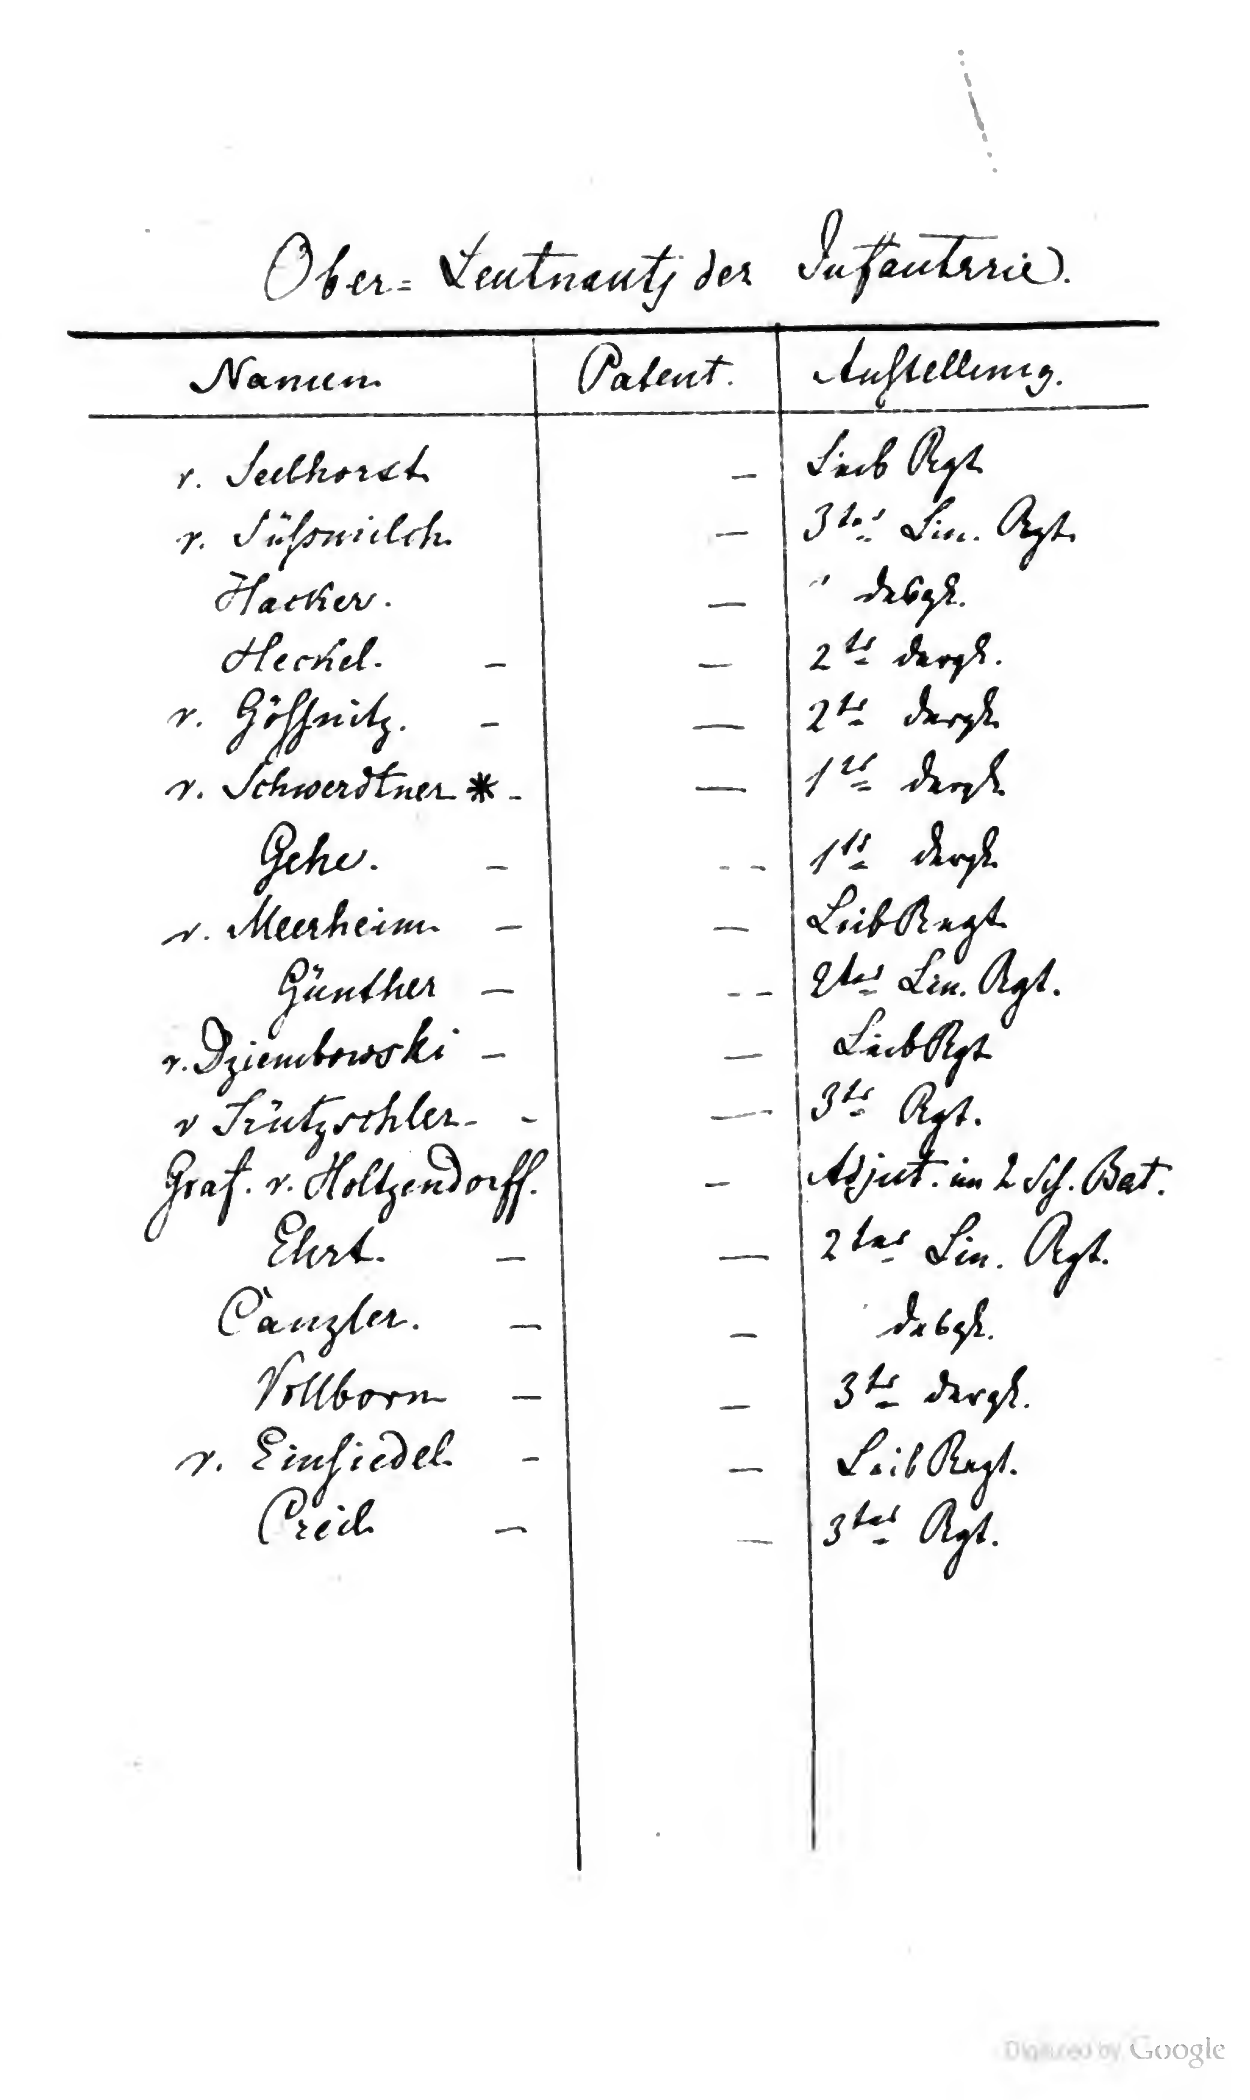 Ober-Leutnants der Infanterie.
Namen. Patent. Anstellung.
v. Seelhorst. — Leib Rgt.
v. Süßmilch. — 3tes Lin. Rgt.
Hacker. — " desgl.
Heckel. — — 2ts dergl.
v. Gößnitz. — — 2ts dergl.
v. Schwerdtner * - — 1es dergl.
Gehe. — -- 1ts dergl.
v. Meerheim. — — Leib Regt.
Günther — -- 2tes Lin. Rgt.
v. Dziembowski — — Leib Rgt
v Trützschler - - — 3ts Rgt.
Graf. v. Holtzendorff. — Adjut. im 2 Sch. Bat.
Ehrt. — — 2tes Lin. Rgt.
Canzler. — — desgl.
Vollborn — — 3ts dergl.
v. Einsiedel. - — Leib Regt.
— — 3tes Rgt.
Digitized by Google